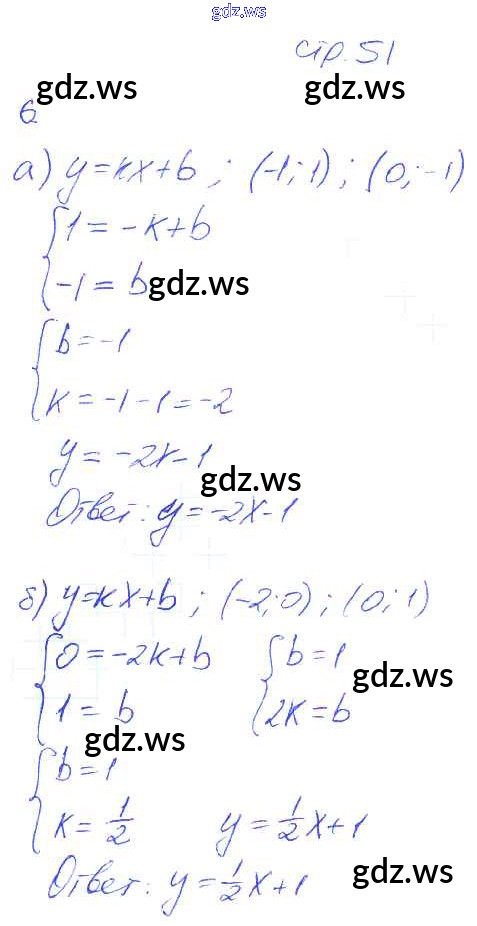 gdz.ws
стр. 51
gdz.ws gdz.ws
6
а) y=kx+b ; (-1; 1) ; (0; -1)
{1 = -k+b
{-1 = b
gdz.ws
{b = -1
{k = -1 - 1 = -2
y = -2x-1
gdz.ws
Ответ: y = -2x-1
б) y=kx+b ; (-2; 0) ; (0; 1)
{0 = -2k+b {b = 1
gdz.ws
{1 = b {2k = b
gdz.ws
{b = 1
{k = 1/2 y = 1/2 x+1
Ответ: y = 1/2 x+1
gdz.ws